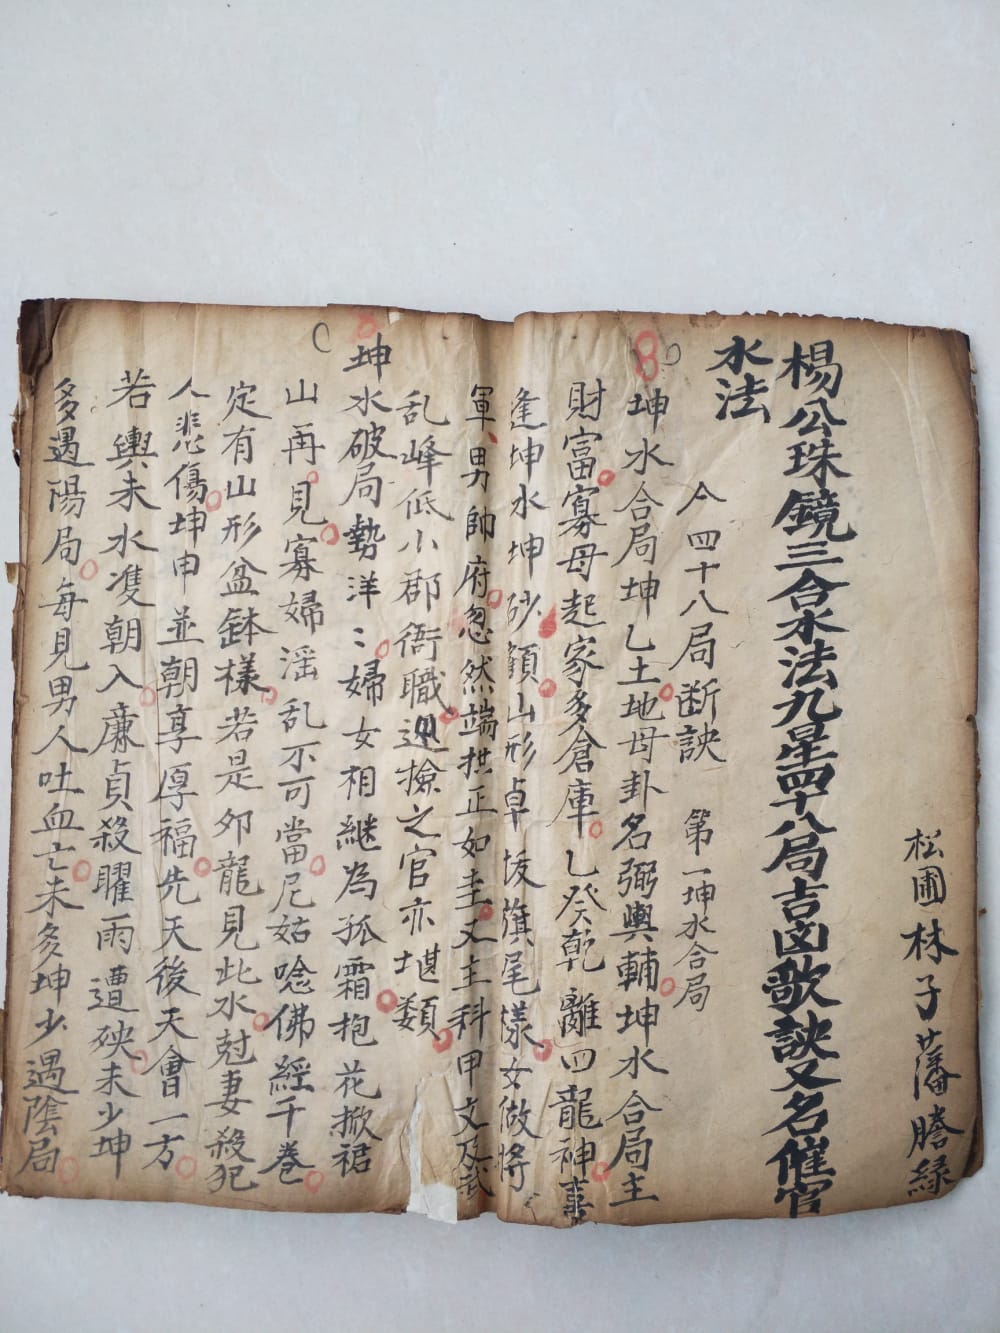 松圃林子藩謄緑
楊公珠鏡三合水法九星四十八局吉凶歌訣又名催官
水法
仝四十八局断訣 第一坤水合局
坤水合局坤乙土地母卦名弼輿輔坤水合局主
財富寡母起家多倉庫乙癸乾離四龍神喜
逢坤水坤砂顧山形卓扳旗尾様女做将
軍男帥府忽然端拱正如圭又主科甲文及武
乱峰低小郡衙職廵撿之官亦堪類
坤水破局勢洋〻婦女相継為孤霜抱花掀裙
山再見寡婦滛乱不可當尼姑唸佛經千巻
定有山形盆鉢様若是夘龍見此水尅妻殺犯
人悲傷坤申並朝享厚福先天後天會一方
若輿未水㕠朝入廉貞殺曜雨遭殃未少坤
多遇陽局每見男人吐血亡未多坤少遇隂局